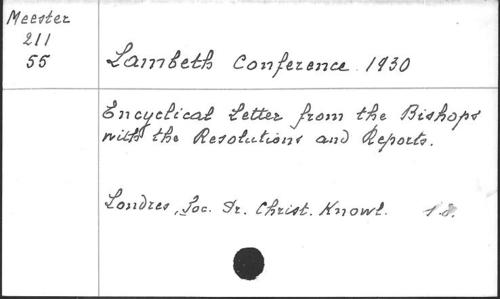 Meester
211
55
Lambeth Conference 1930
Encyclical Letter from the Bishops
with the Resolutions and Reports.
Londres, Soc. Pr. Christ. Knowl. s.d.